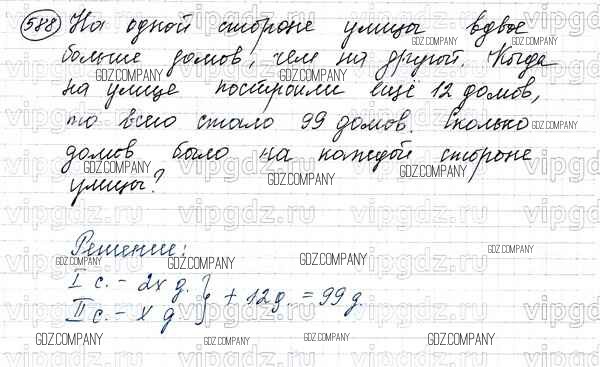 588 На одной стороне улицы вдвое
больше домов, чем на другой. Когда
на улице построили ещё 12 домов,
то всего стало 99 домов. Сколько
домов было на каждой стороне
улицы?
Решение:
I с. - 2х д.
II с. - х д
} + 12 д = 99 д.
GDZ.COMPANY
vipgdz.ru